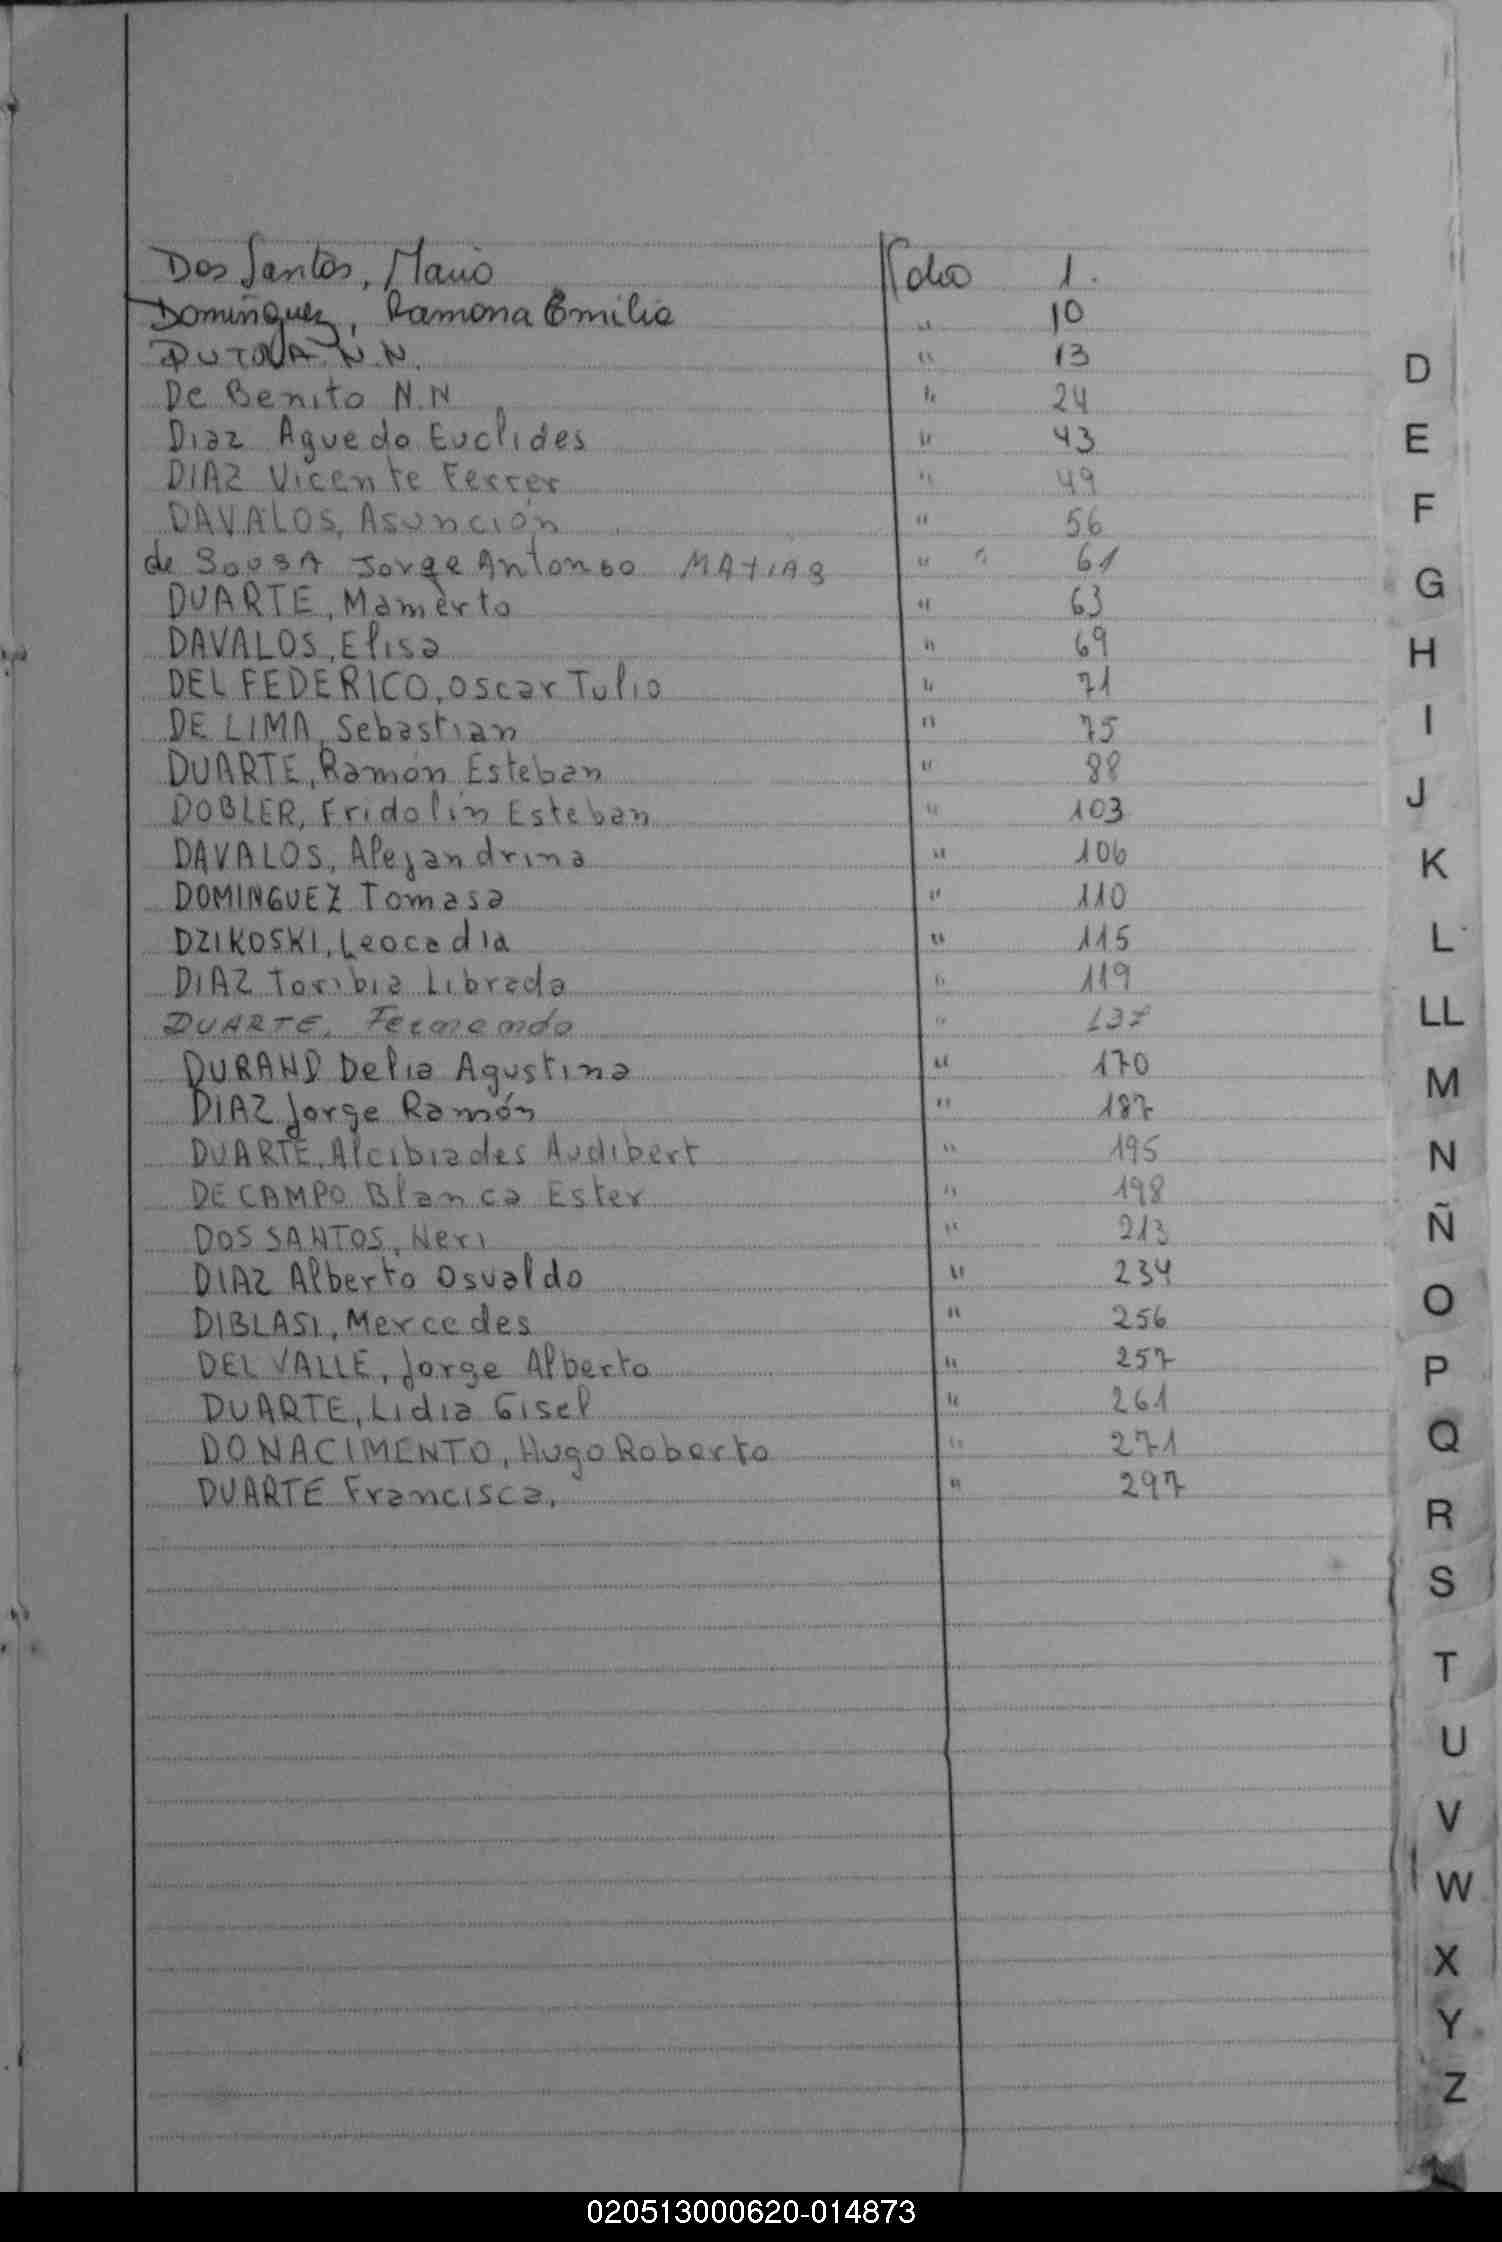 Dos Santos, Mario Folio 1.
Dominguez, Ramona Emilia " 10
DUTRA N.N. " 13
De Benito N.N " 24
Diaz Aguedo Euclides " 43
DIAZ Vicente Ferrer " 49
DAVALOS, Asunción " 56
de SOUSA Jorge Antonso MATIAS " " 61
DUARTE, Mamerto " 63
DAVALOS, Elisa " 69
DEL FEDERICO, Oscar Tulio " 71
DE LIMA, Sebastian " 75
DUARTE, Ramón Esteban " 88
DOBLER, Fridolin Esteban " 103
DAVALOS, Alejandrina " 106
DOMINGUEZ Tomasa " 110
DZIKOSKI, Leocadia " 115
DIAZ Toribia Librada " 119
DUARTE, Fernando " 137
DURAND Delia Agustina " 170
DIAZ Jorge Ramón " 187
DUARTE, Alcibiades Audibert " 195
DE CAMPO Blanca Ester " 198
DOS SANTOS, Neri " 213
DIAZ Alberto Osvaldo " 234
DIBLASI, Mercedes " 256
DEL VALLE, Jorge Alberto " 257
DUARTE, Lidia Gisel " 261
DO NACIMENTO, Hugo Roberto " 271
DUARTE Francisca, " 297
D
E
F
G
H
I
J
K
L
LL
M
N
Ñ
O
P
Q
R
S
T
U
V
W
X
Y
Z
020513000620-014873